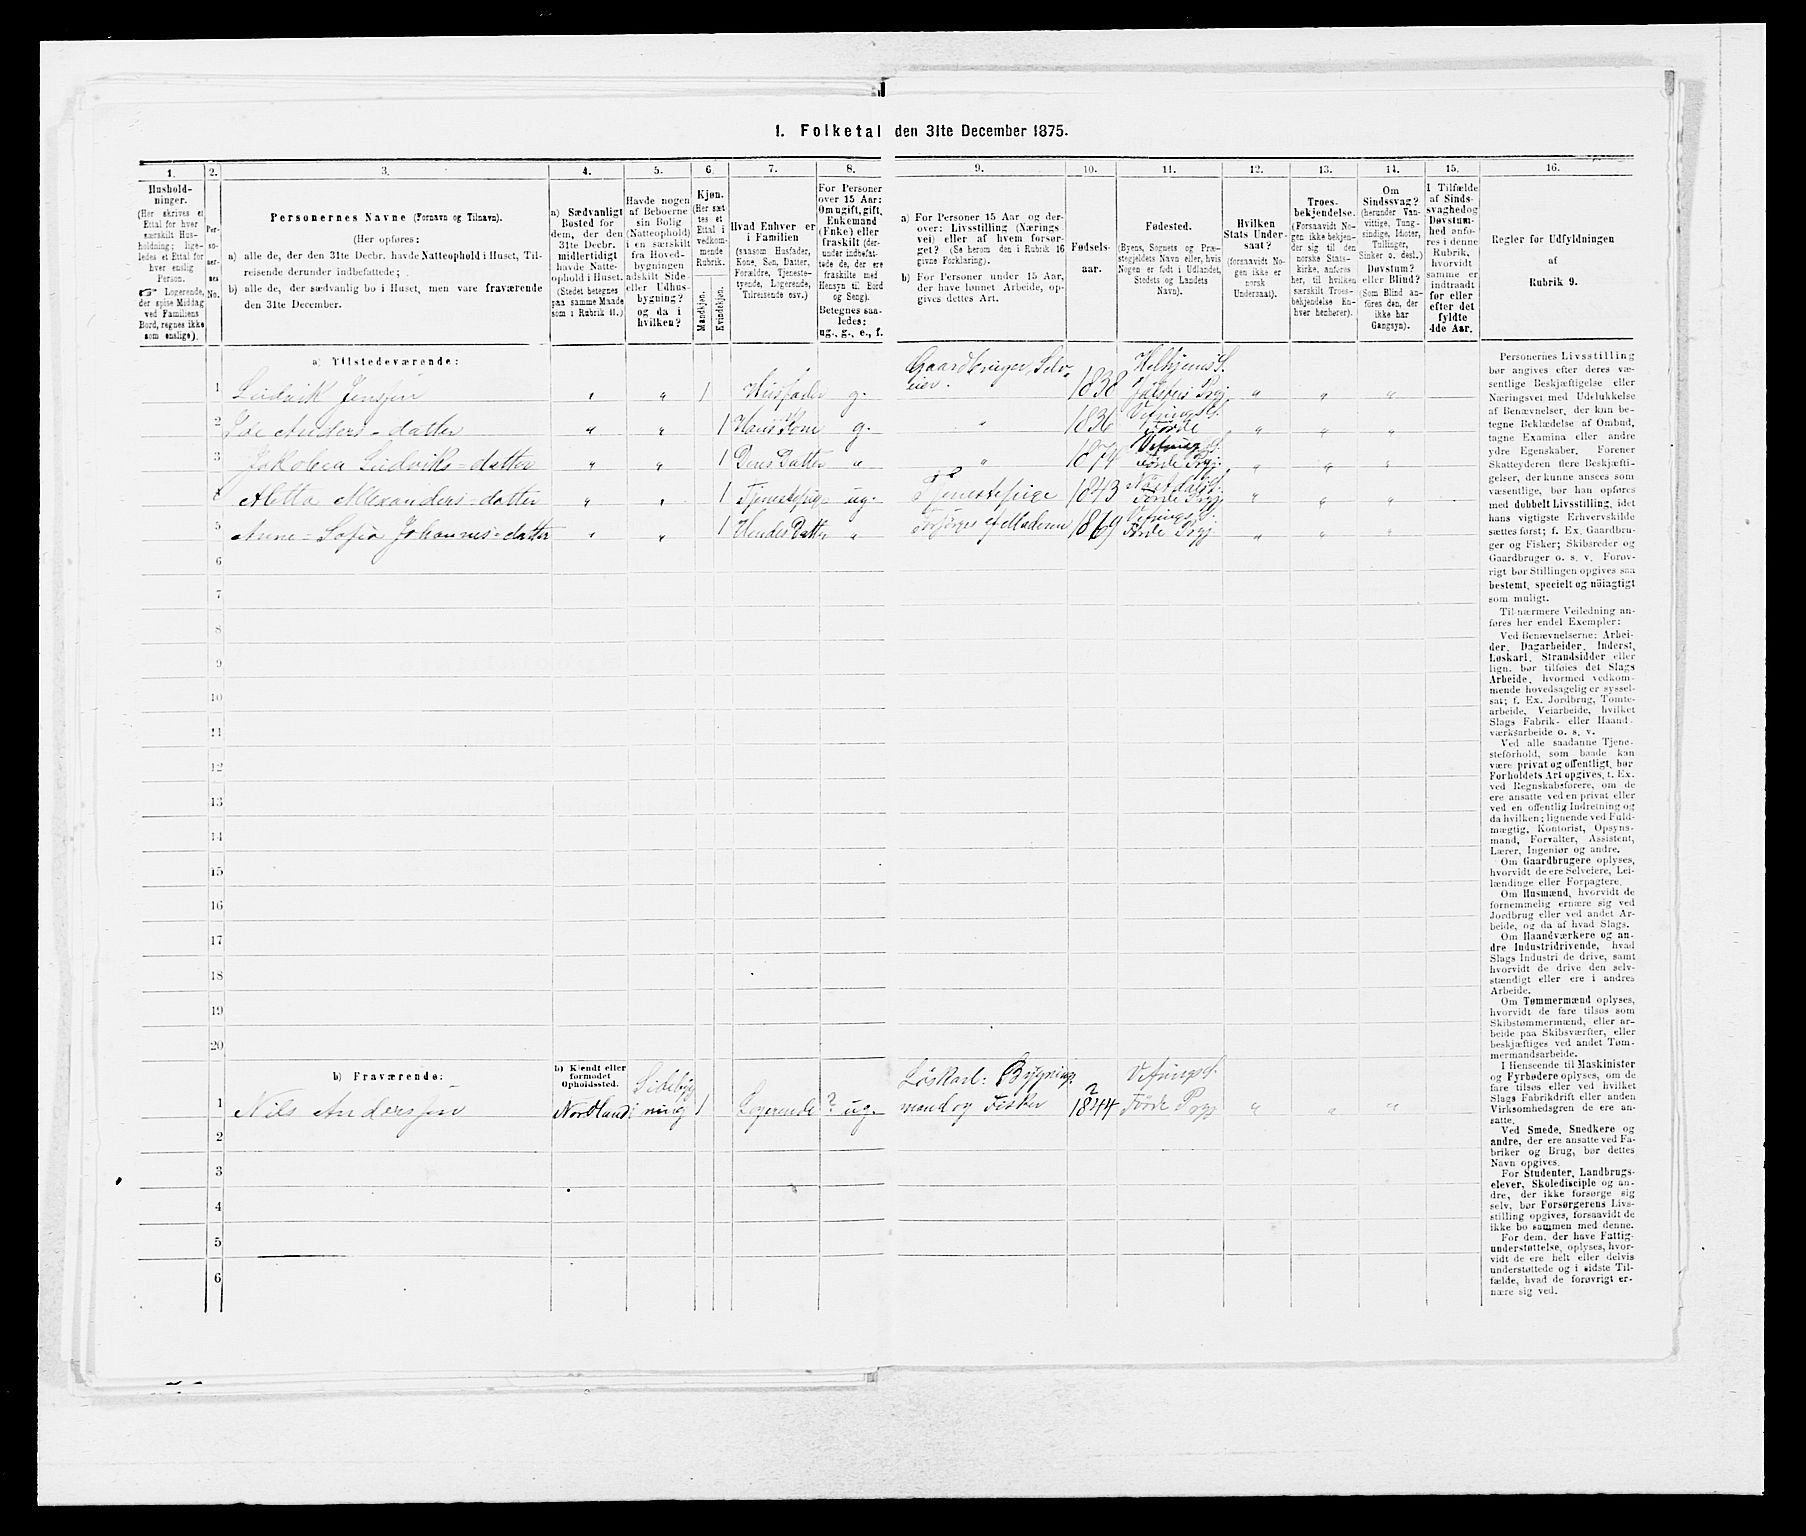 1. Folketal den 31te December 1875.
1.
2.
3.
4.
5.
6.
7.
8.
9.
10.
11.
12.
13.
14.
15.
16.
Hushold-
ninger.
(Her skrives et
Ettal for hver
særskilt Hus-
holdning; lige-
ledes et Ettal for
hver enslig
Person.
☞ Logerende,
der spise Middag
ved Familiens
Bord, regnes ikke
som enslige).
Per-
so-
ner-
nes
No.
Personernes Navne (Fornavn og Tilnavn).
(Her opføres:
a) alle de, der den 31te Decbr. havde Natteophold i Huset, Til-
reisende derunder indbefattede;
b) alle de, der sædvanlig bo i Huset, men vare fraværende
den 31te December.
a) Sædvanligt
Bosted for
dem, der den
31te Decbr.
midlertidigt
havde Natte-
ophold i Huset.
(Stedet betegnes
paa samme Maade
som i Rubrik 11.)
Havde nogen
af Beboerne
sin Bolig
(Natteophold)
i en særskilt
fra Hoved-
bygningen
adskilt Side-
eller Udhus-
bygning?
og da i
hvilken?
Kjøn.
(Her sæt-
tes et
Ettal i
vedkom-
mende
Rubrik.
Mandkjøn.
Kvindekjøn.
Hvad Enhver er
i Familien
(saasom Husfader,
Kone, Søn, Datter,
Forældre, Tjeneste-
tyende, Logerende,
Tilreisende osv.)
For Personer
over 15 Aar:
Om ugift, gift,
Enkemand
(Enke) eller
fraskilt (der-
under indbefat-
tede de, der ere
fraskilte med
Hensyn til Bord
og Seng).
Betegnes saa-
ledes:
ug., g., e., f.
a) For Personer 15 Aar og der-
over: Livsstilling (Nærings-
vei) eller af hvem forsør-
get? (Se herom den i Rubrik 16
givne Forklaring).
b) For Personer under 15 Aar,
der have lønnet Arbeide, op-
gives dettes Art.
Fødsels-
aar.
Fødested.
(Byens, Sognets og Præ-
stegjeldets Navn eller, hvis
Nogen er født i Udlandet,
Stedets og Landets
Navn).
Hvilken
Stats Under-
saat?
(forsaavidt No-
gen ikke er
norsk
Undersaat).
Troes-
bekjendelse.
(Forsaavidt No-
gen ikke bekjen-
der sig til den
norske Stats-
kirke, anføres
her, til hvilken
særskilt Troes-
bekjendelse En-
hver henhører).
Om
Sindssvag?
(herunder Van-
vittige, Tung-
sindige, Idioter,
Tullinger,
Sinker o. desl.)
Døvstum?
eller Blind?
(Som Blind an-
føres den, der
ikke har
Gangsyn).
I Tilfælde
af Sinds-
svaghed og
Døvstum-
hed anfø-
res i denne
Rubrik,
hvorvidt
samme er
indtraadt
før eller
efter det
fyldte
4de Aar.
Regler for Udfyldningen
af
Rubrik 9.
a) Tilstedeværende:
Gaardbruger, Selv-
1 Ludvik Jensen " " 1 Husfader g. eier. 1838 Jølster Prgj. " " "
2 Ide Anders-datter " " 1 Hans Kone g. " 1836 Førde " " "
3 Jakobea Ludviks-datter " " 1 Deres Datter " " 1874 Førde Prgj. " " "
4 Aletta Alexanders-datter " " 1 Tjenestepige ug. Tjenestepige 1843 Førde Prgj. " " "
5 Anne-Sofia Johannes-datter " " 1 Hendes Datter " Forsørges af Moderen 1869 Førde Prgj. " " "
6
7
8
9
10
11
12
13
14
15
16
17
18
19
20
b) Fraværende:
b) Kjendt eller
formodet
Opholdssted.
Sidebyg Løskarl: Bygnings-
1 Nils Anderssen Nordland ning 1 Logerende ? ug. mand og Fisker 1844 ? Førde Prgj " " "
2
3
4
5
6
Personernes Livsstilling
bør angives efter deres væ-
sentlige Beskjæftigelse eller
Næringsvei med Udelukkelse
af Benævnelser, der kun be-
tegne Beklædelse af Ombud,
tagne Examina eller andre
ydre Egenskaber. Forener
Skatteyderen flere Beskjæfti-
gelser, der kunne ansees som
væsentlige, bør han opføres
med dobbelt Livsstilling, idet
hans vigtigste Erhvervskilde
sættes først; f. Ex. Gaardbru-
ger og Fisker; Skibsreder og
Gaardbruger o. s. v. Forøv-
rigt bør Stillingen opgives saa
bestemt, specielt og nøiagtigt
som muligt.
Til nærmere Veiledning an-
føres her endel Exempler:
Ved Benævnelserne: Arbei-
der, Dagarbeider, Inderst,
Løskarl, Strandsidder eller
lign. bør tilføies det Slags
Arbeide, hvormed vedkom-
mende hovedsagelig er syssel-
sat; f. Ex. Jordbrug, Tomte-
arbeide, Veiarbeide, hvilket
Slags Fabrik- eller Haand-
værksarbeide o. s. v.
Ved alle saadanne Tjene-
steforhold, som baade kan
være privat og offentligt, bør
Forholdets Art opgives, f. Ex.
ved Regnskabsførere, om de
ere ansatte ved en privat eller
ved en offentlig Indretning og
da hvilken; lignende ved Fuld-
mægtig, Kontorist, Opsyns-
mand, Forvalter, Assistent,
Lærer, Ingeniør og andre.
Om Gaardbrugere oplyses,
hvorvidt de ere Selveiere, Lei-
lændinge eller Forpagtere.
Om Husmænd, hvorvidt de
fornemmelig ernære sig ved
Jordbrug eller ved andet Ar-
beide, og da af hvad Slags.
Om Haandværkere og an-
dre Industridrivende, hvad
Slags Industri de drive, samt
hvorvidt de drive den selv-
stændigt eller ere i andres
Arbeide.
Om Tømmermænd oplyses,
hvorvidt de fare tilsøs som
Skibstømmermænd, eller ar-
beide paa Skibsværfter, eller
beskjæftiges ved andet Tøm-
mermandsarbeide.
I Henseende til Maskinister
og Fyrbødere oplyses, om de
fare tilsøs eller ved hvilket
Slags Fabrikdrift eller anden
Virksomhedsgren de ere an-
satte.
Ved Smede, Snedkere og
andre, der ere ansatte ved Fa-
briker og Brug, bør dettes
Navn opgives.
For Studenter, Landbrugs-
elever, Skoledisciple og an-
dre, der ikke forsørge sig
selv, bør Forsørgerens Livs-
stilling opgives, forsaavidt de
ikke bo sammen med denne.
For dem, der have Fattig-
understøttelse, oplyses, hvor-
vidt de ere helt eller delvis
understøttede og i sidste Til-
fælde, hvad de forøvrigt er-
nære sig ved.